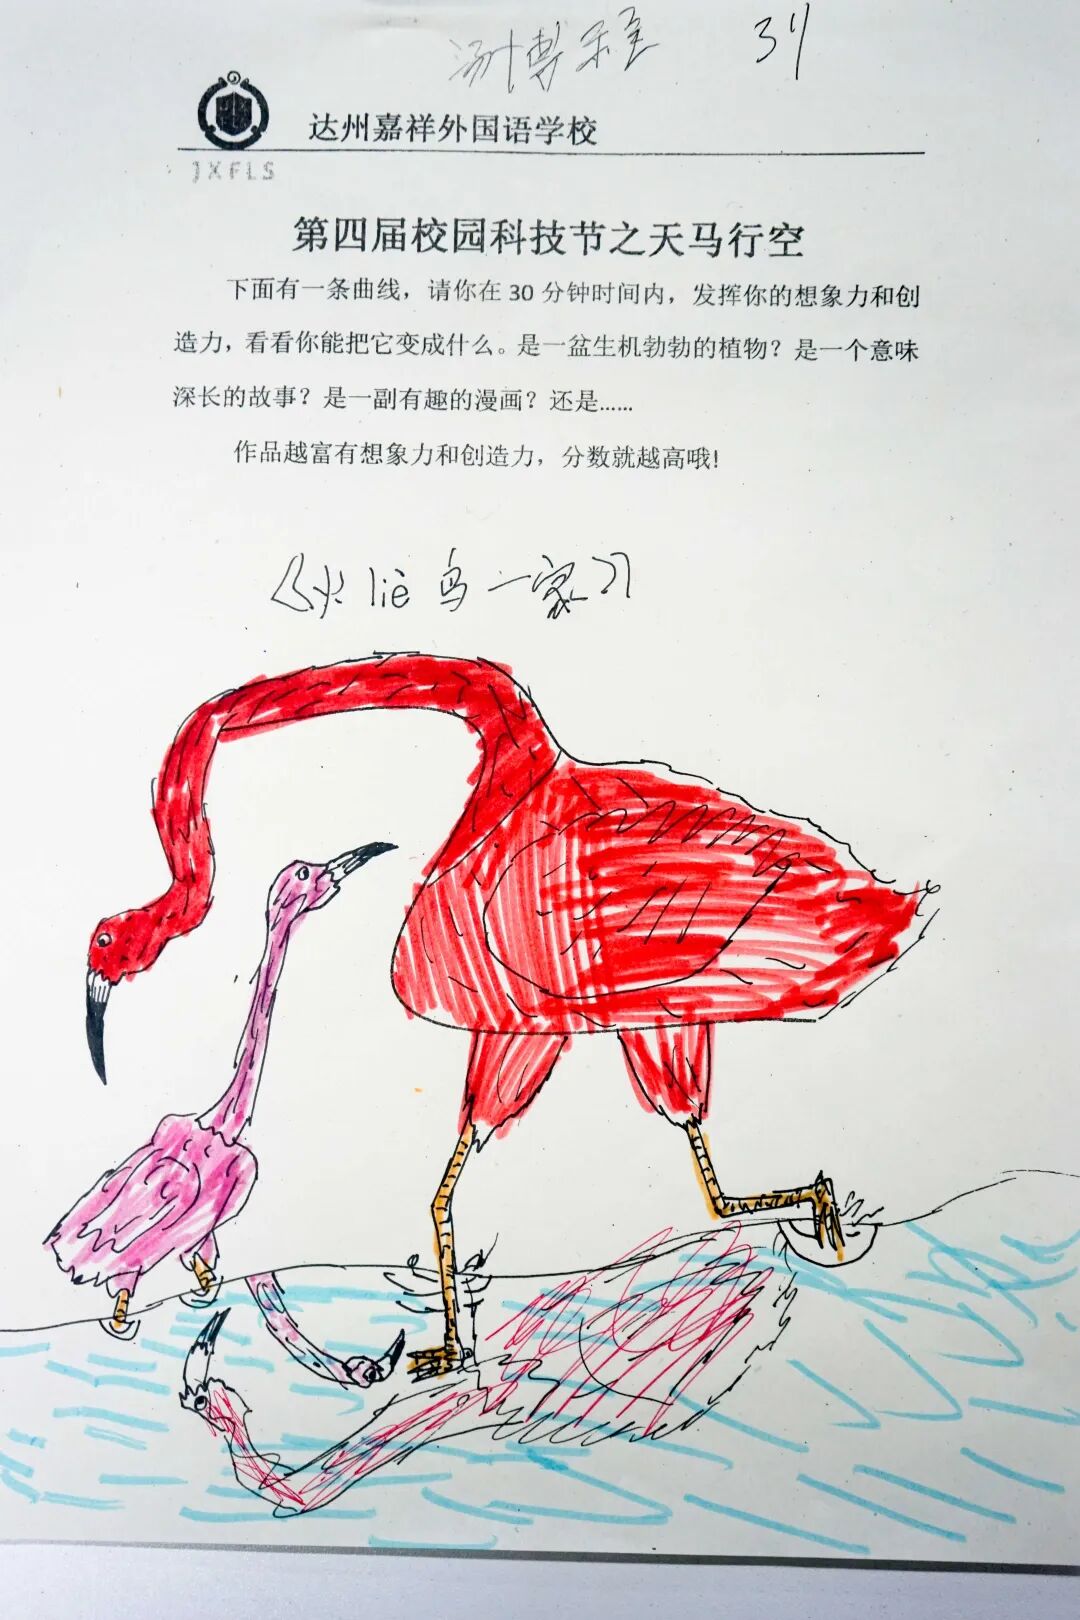 汤博
31
达州嘉祥外国语学校
JXFLS
第四届校园科技节之天马行空
下面有一条曲线，请你在 30 分钟时间内，发挥你的想象力和创
造力，看看你能把它变成什么。是一盆生机勃勃的植物？是一个意味
深长的故事？是一副有趣的漫画？还是……
作品越富有想象力和创造力，分数就越高哦！
《火 liè 鸟一家》